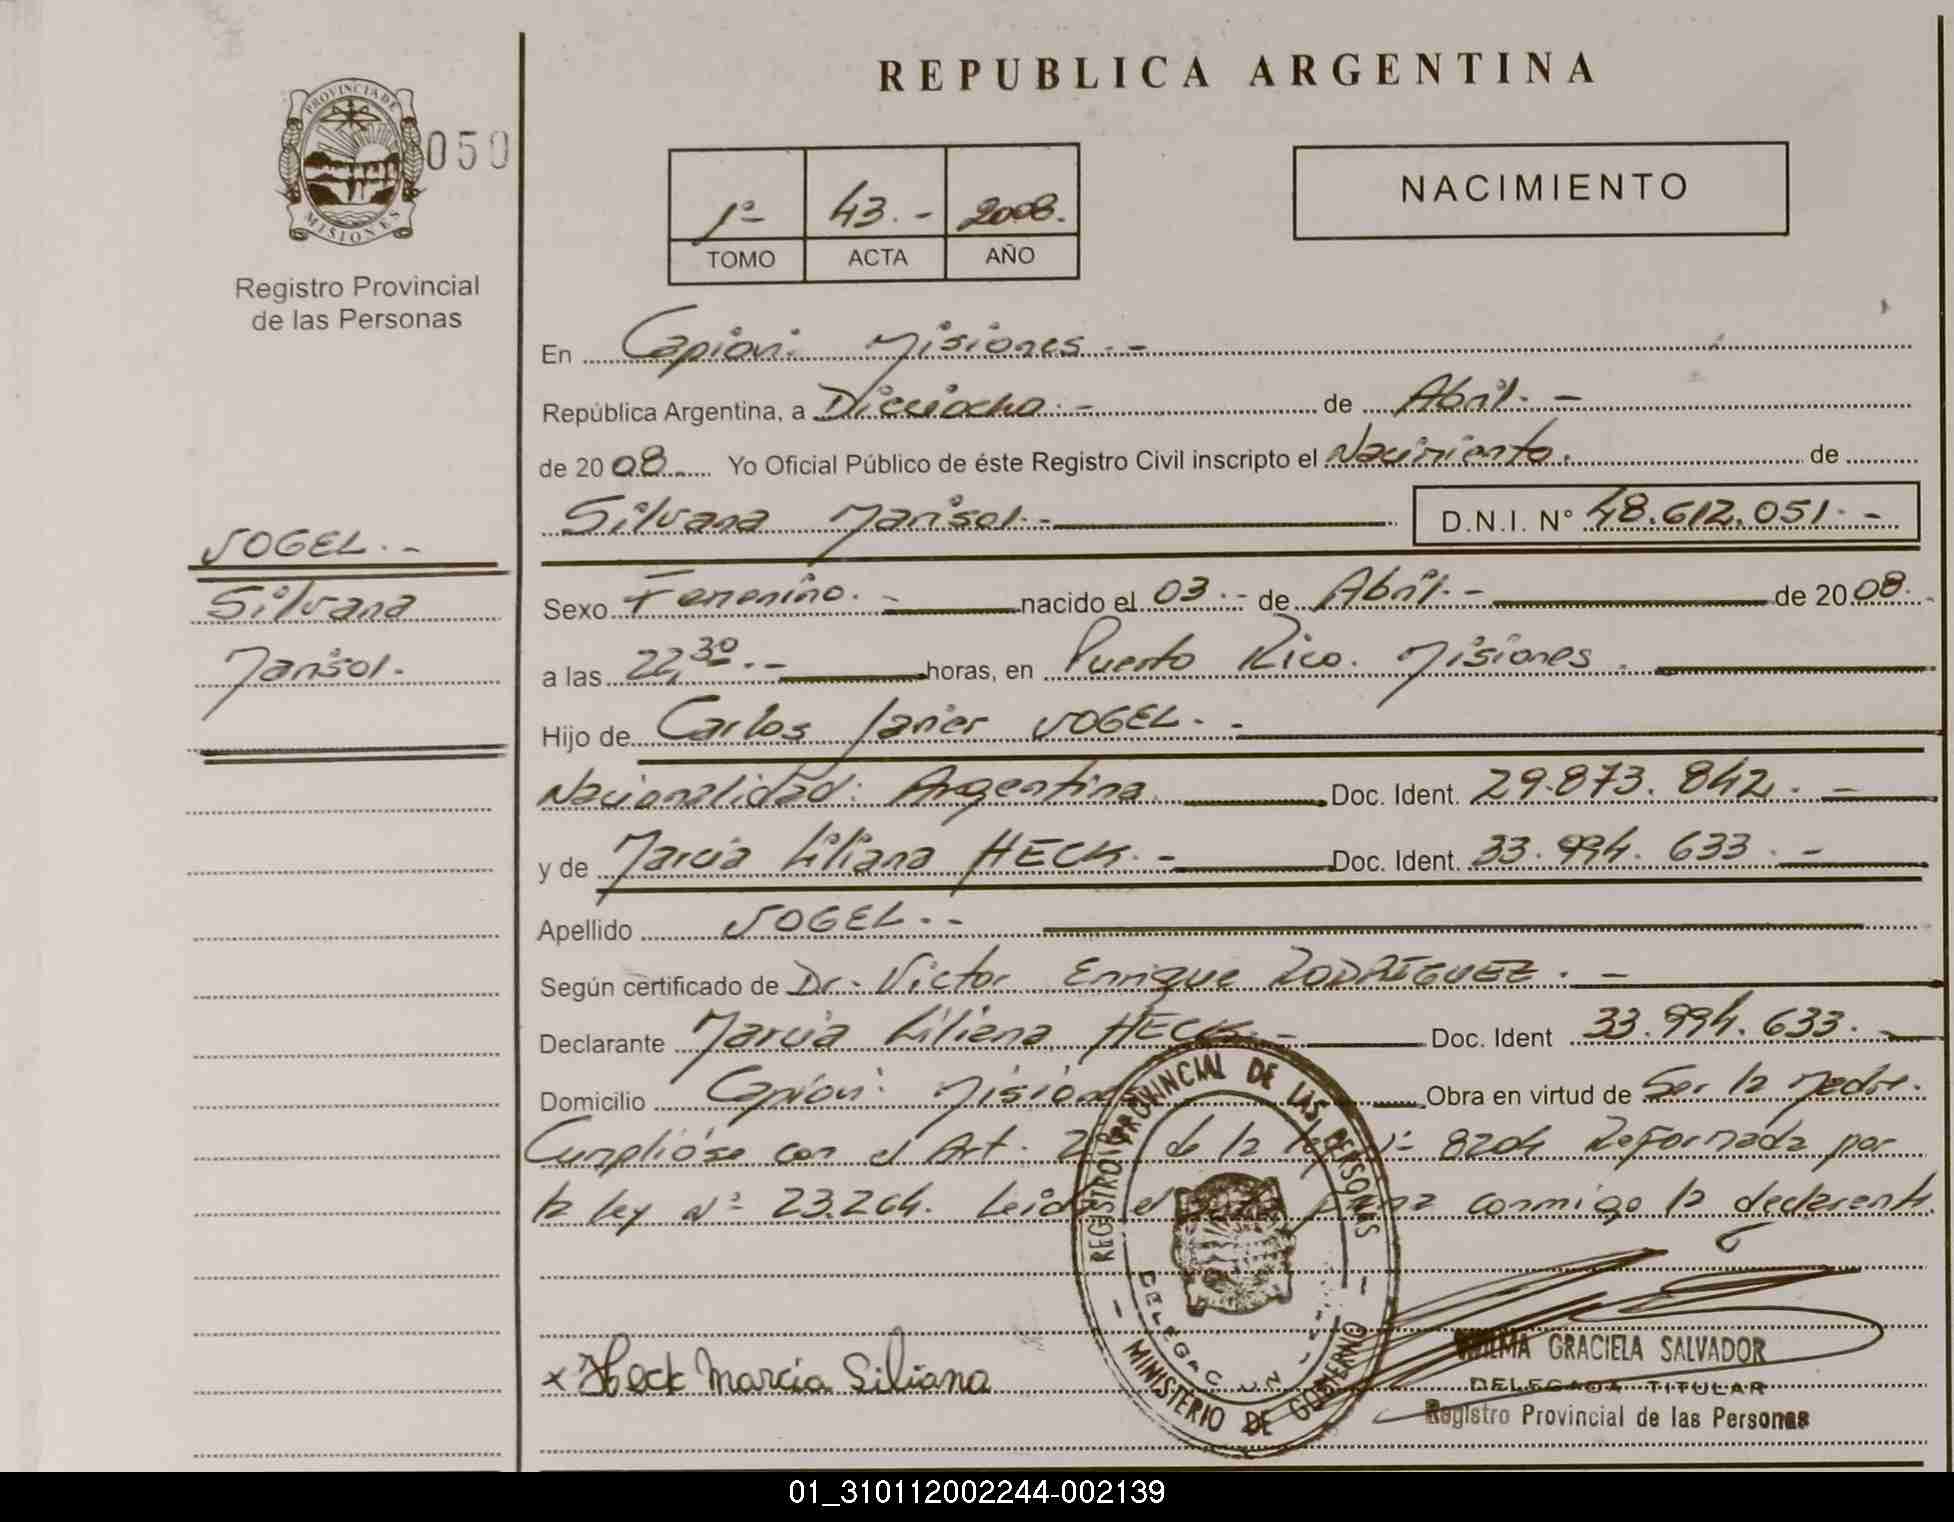 REPUBLICA ARGENTINA
PROVINCIA DE
MISIONES
050
Registro Provincial
de las Personas
1º 43.- 2008.
TOMO ACTA AÑO
NACIMIENTO
En Capiovi Misiones.-
República Argentina, a Dieciocho.- de Abril.-
de 2008 Yo Oficial Público de éste Registro Civil inscripto el Nacimiento. de
Silvana Marisol.- D.N.I. Nº 48.612.051.-
VOGEL.-
Silvana
Marisol.
Sexo Femenino.- nacido el 03.- de Abril.- de 2008.
a las 22,30.- horas, en Puerto Rico. Misiones.
Hijo de Carlos Javier VOGEL.-
Nacionalidad: Argentina. Doc. Ident. 29.873.842.-
y de Marcia Liliana HECK.- Doc. Ident. 33.994.633.-
Apellido VOGEL.-
Según certificado de Dr. Victor Enrique RODRIGUEZ.-
Declarante Marcia Liliana HECK.- Doc. Ident 33.994.633.-
Domicilio Capiovi Misiones Obra en virtud de Ser la Madre.
Cumplióse con el Art. de la ley 8204 Reformada por
la ley Nº 23.264. Leida el acta firma conmigo la declarante
REGISTRO PROVINCIAL DE LAS PERSONAS
DELEGACION
MINISTERIO DE GOBIERNO
x Heck Marcia Liliana
GRACIELA SALVADOR
DELEGADA TITULAR
Registro Provincial de las Personas
01_310112002244-002139